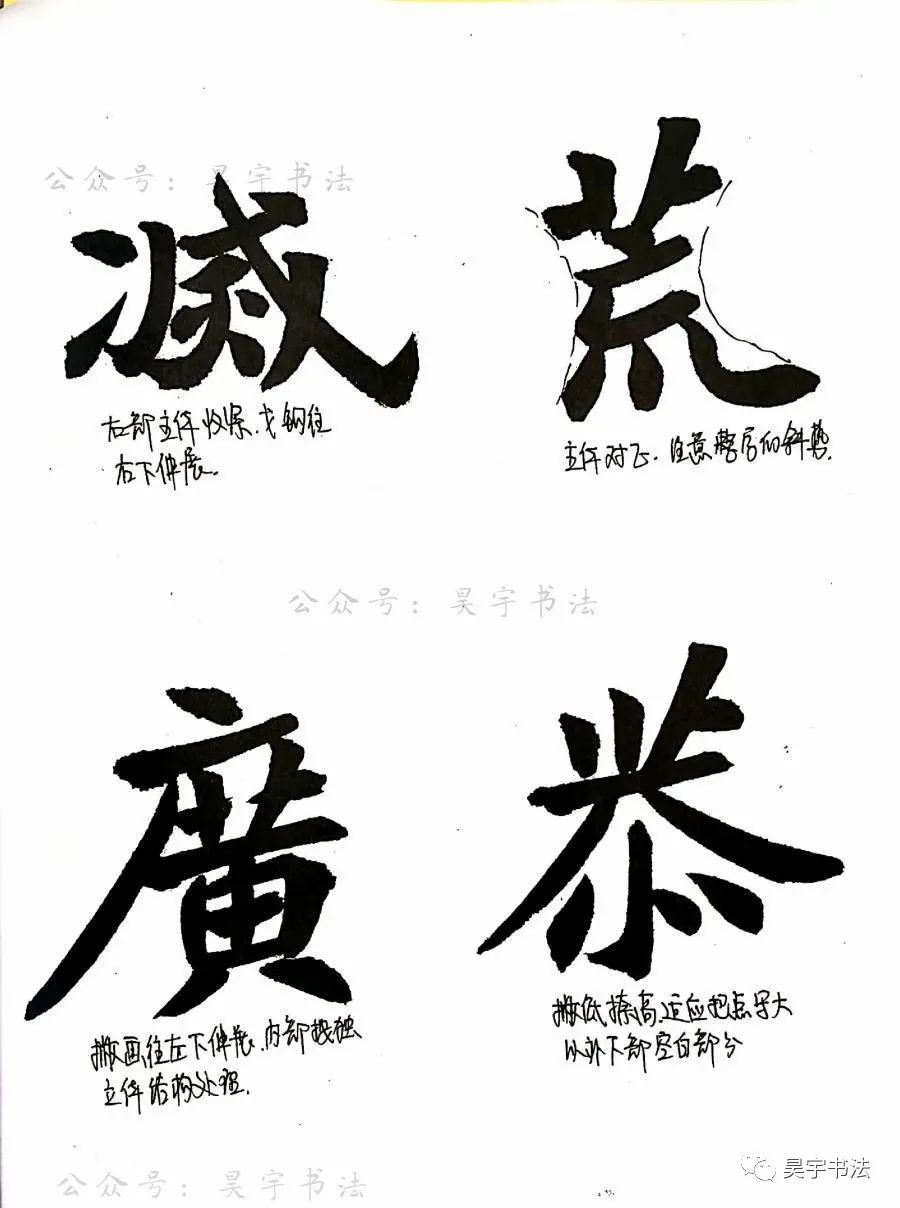 公众号：昊宇书法
滅 荒
左部主体收紧，戈钩往
右下伸展。
主体对飞．注意整字的斜势．
公众号：昊宇书法
廣 恭
撇画往左下伸展．内部按独
立体结构处理．
撇低捺高，适应把点写大
以补下部空白部分
公众号：昊宇书法
昊宇书法